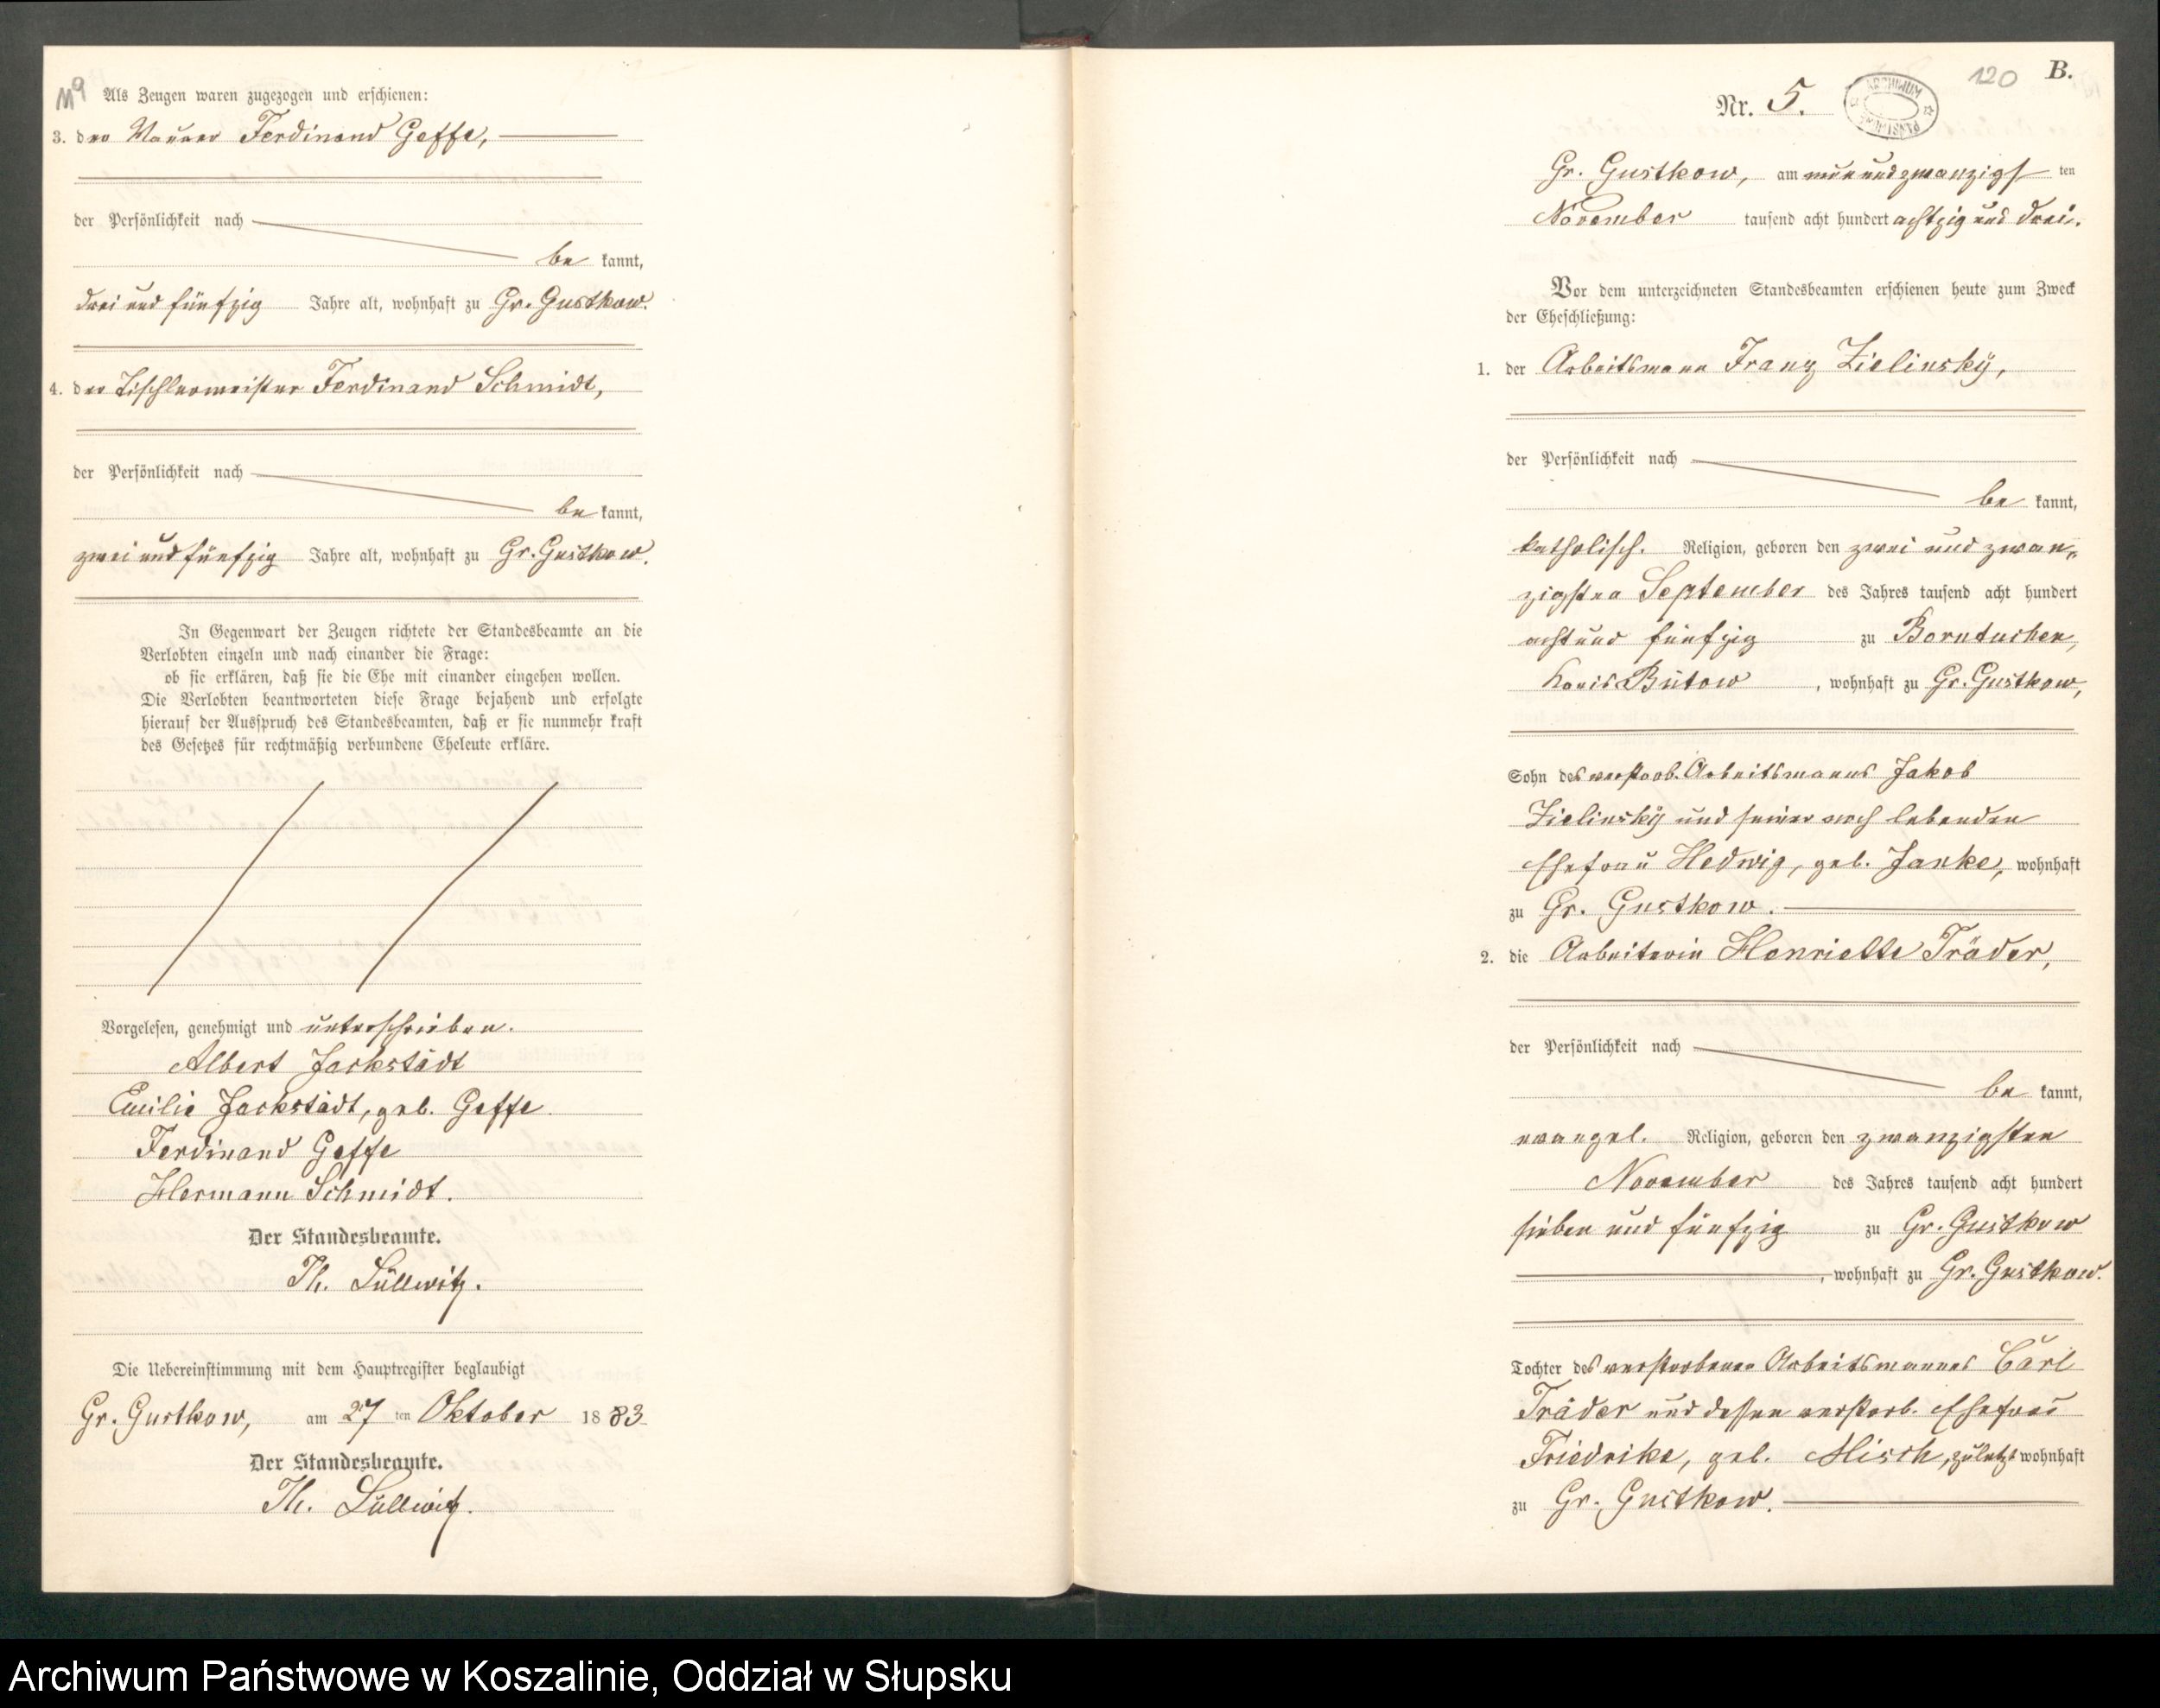 119 Als Zeugen waren zugezogen und erschienen:
3. der Maurer Ferdinand Geffe,
der Persönlichkeit nach
be kannt,
drei und fünfzig Jahre alt, wohnhaft zu Gr. Gustkow.
4. der Tischlermeister Ferdinand Schmidt,
der Persönlichkeit nach
be kannt,
zwei und fünfzig Jahre alt, wohnhaft zu Gr. Gustkow.
In Gegenwart der Zeugen richtete der Standesbeamte an die
Verlobten einzeln und nach einander die Frage:
ob sie erklären, daß sie die Ehe mit einander eingehen wollen.
Die Verlobten beantworteten diese Frage bejahend und erfolgte
hierauf der Ausspruch des Standesbeamten, daß er sie nunmehr kraft
des Gesetzes für rechtmäßig verbundene Eheleute erkläre.
Vorgelesen, genehmigt und unterschrieben.
Albert Jackstädt
Emilie Jackstädt, geb. Geffe
Ferdinand Geffe
Hermann Schmidt.
Der Standesbeamte.
Th. Lüllwitz.
Die Uebereinstimmung mit dem Hauptregister beglaubigt
Gr. Gustkow, am 27 ten Oktober 1883
Der Standesbeamte.
Th. Lüllwitz.
120 B.
Nr. 5.
ARCHIWUM PAŃSTWOWE
Gr. Gustkow, am neun und zwanzigs ten
November tausend acht hundert achtzig und drei.
Vor dem unterzeichneten Standesbeamten erschienen heute zum Zweck
der Eheschließung:
1. der Arbeitsmann Franz Zielinsky,
der Persönlichkeit nach
be kannt,
katholisch. Religion, geboren den zwei und zwan-
zigsten September des Jahres tausend acht hundert
acht und fünfzig zu Borntuchen,
Kreis Bütow, wohnhaft zu Gr. Gustkow,
Sohn des verstorb. Arbeitsmanns Jakob
Zielinsky und seiner noch lebenden
Ehefrau Hedwig, geb. Janke, wohnhaft
zu Gr. Gustkow.
2. die Arbeiterin Henriette Träder,
der Persönlichkeit nach
be kannt,
evangel. Religion, geboren den zwanzigsten
November des Jahres tausend acht hundert
sieben und fünfzig zu Gr. Gustkow
, wohnhaft zu Gr. Gustkow.
Tochter des verstorbenen Arbeitsmannes Carl
Träder und dessen verstorb. Ehefrau
Friedrike, geb. Misch, zuletzt wohnhaft
zu Gr. Gustkow.
Archiwum Państwowe w Koszalinie, Oddział w Słupsku